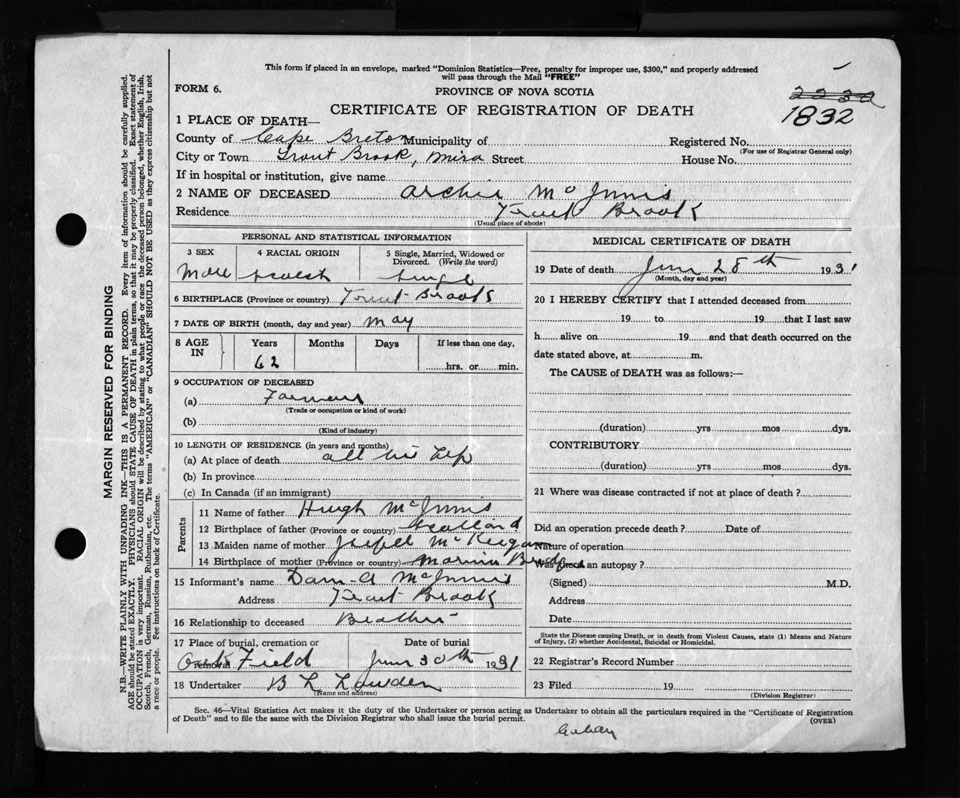 This form if placed in an envelope, marked "Dominion Statistics—Free, penalty for improper use, $300," and properly addressed
will pass through the Mail "FREE"
FORM 6.
PROVINCE OF NOVA SCOTIA
CERTIFICATE OF REGISTRATION OF DEATH
1832
1 PLACE OF DEATH—
County of Cape Breton Municipality of Registered No.
(For use of Registrar General only)
City or Town Trout Brook, Mira Street House No.
If in hospital or institution, give name
2 NAME OF DECEASED Archie McInnis
Residence Trout Brook
(Usual place of abode)
PERSONAL AND STATISTICAL INFORMATION
3 SEX 4 RACIAL ORIGIN 5 Single, Married, Widowed or
Divorced. (Write the word)
Male Scotch Single
6 BIRTHPLACE (Province or country) Trout Brook
7 DATE OF BIRTH (month, day and year) May
8 AGE IN Years Months Days If less than one day,
62 hrs. or min.
9 OCCUPATION OF DECEASED
(a) Farmer
(Trade or occupation or kind of work)
(b)
(Kind of industry)
10 LENGTH OF RESIDENCE (in years and months)
(a) At place of death all his life
(b) In province
(c) In Canada (if an immigrant)
Parents
11 Name of father Hugh McInnis
12 Birthplace of father (Province or country) Scotland
13 Maiden name of mother McKeigan
14 Birthplace of mother (Province or country) Marion Bridge
15 Informant's name Dan A McInnis
Address Trout Brook
16 Relationship to deceased Brother
17 Place of burial, cremation or Date of burial
Field June 30th 1931
18 Undertaker B L Lowden
(Name and address)
MEDICAL CERTIFICATE OF DEATH
19 Date of death June 28th 1931
(Month, day and year)
20 I HEREBY CERTIFY that I attended deceased from
19 to 19 that I last saw
h alive on 19 and that death occurred on the
date stated above, at m.
The CAUSE of DEATH was as follows:—
(duration) yrs mos dys.
CONTRIBUTORY
(duration) yrs mos dys.
21 Where was disease contracted if not at place of death?
Did an operation precede death? Date of
Nature of operation
Was there an autopsy?
(Signed) M.D.
Address
Date
State the Disease causing Death, or in death from Violent Causes, state (1) Means and Nature
of Injury, (2) whether Accidental, Suicidal or Homicidal.
22 Registrar's Record Number
23 Filed 19
(Division Registrar)
Sec. 46—Vital Statistics Act makes it the duty of the Undertaker or person acting as Undertaker to obtain all the particulars required in the "Certificate of Registration
of Death" and to file the same with the Division Registrar who shall issue the burial permit. (OVER)
MARGIN RESERVED FOR BINDING
N.B.—WRITE PLAINLY WITH UNFADING INK—THIS IS A PERMANENT RECORD. Every item of information should be carefully supplied.
AGE should be stated EXACTLY. PHYSICIANS should STATE CAUSE OF DEATH in plain terms, so that it may be properly classified. Exact statement of
OCCUPATION is very important. RACIAL ORIGIN will be described by stating to what people or race the deceased person belonged, whether English, Irish,
Scotch, French, German, Russian, Ruthenian, etc. The terms "AMERICAN" or "CANADIAN" SHOULD NOT BE USED as they express citizenship but not
a race or people. See instructions on back of Certificate.